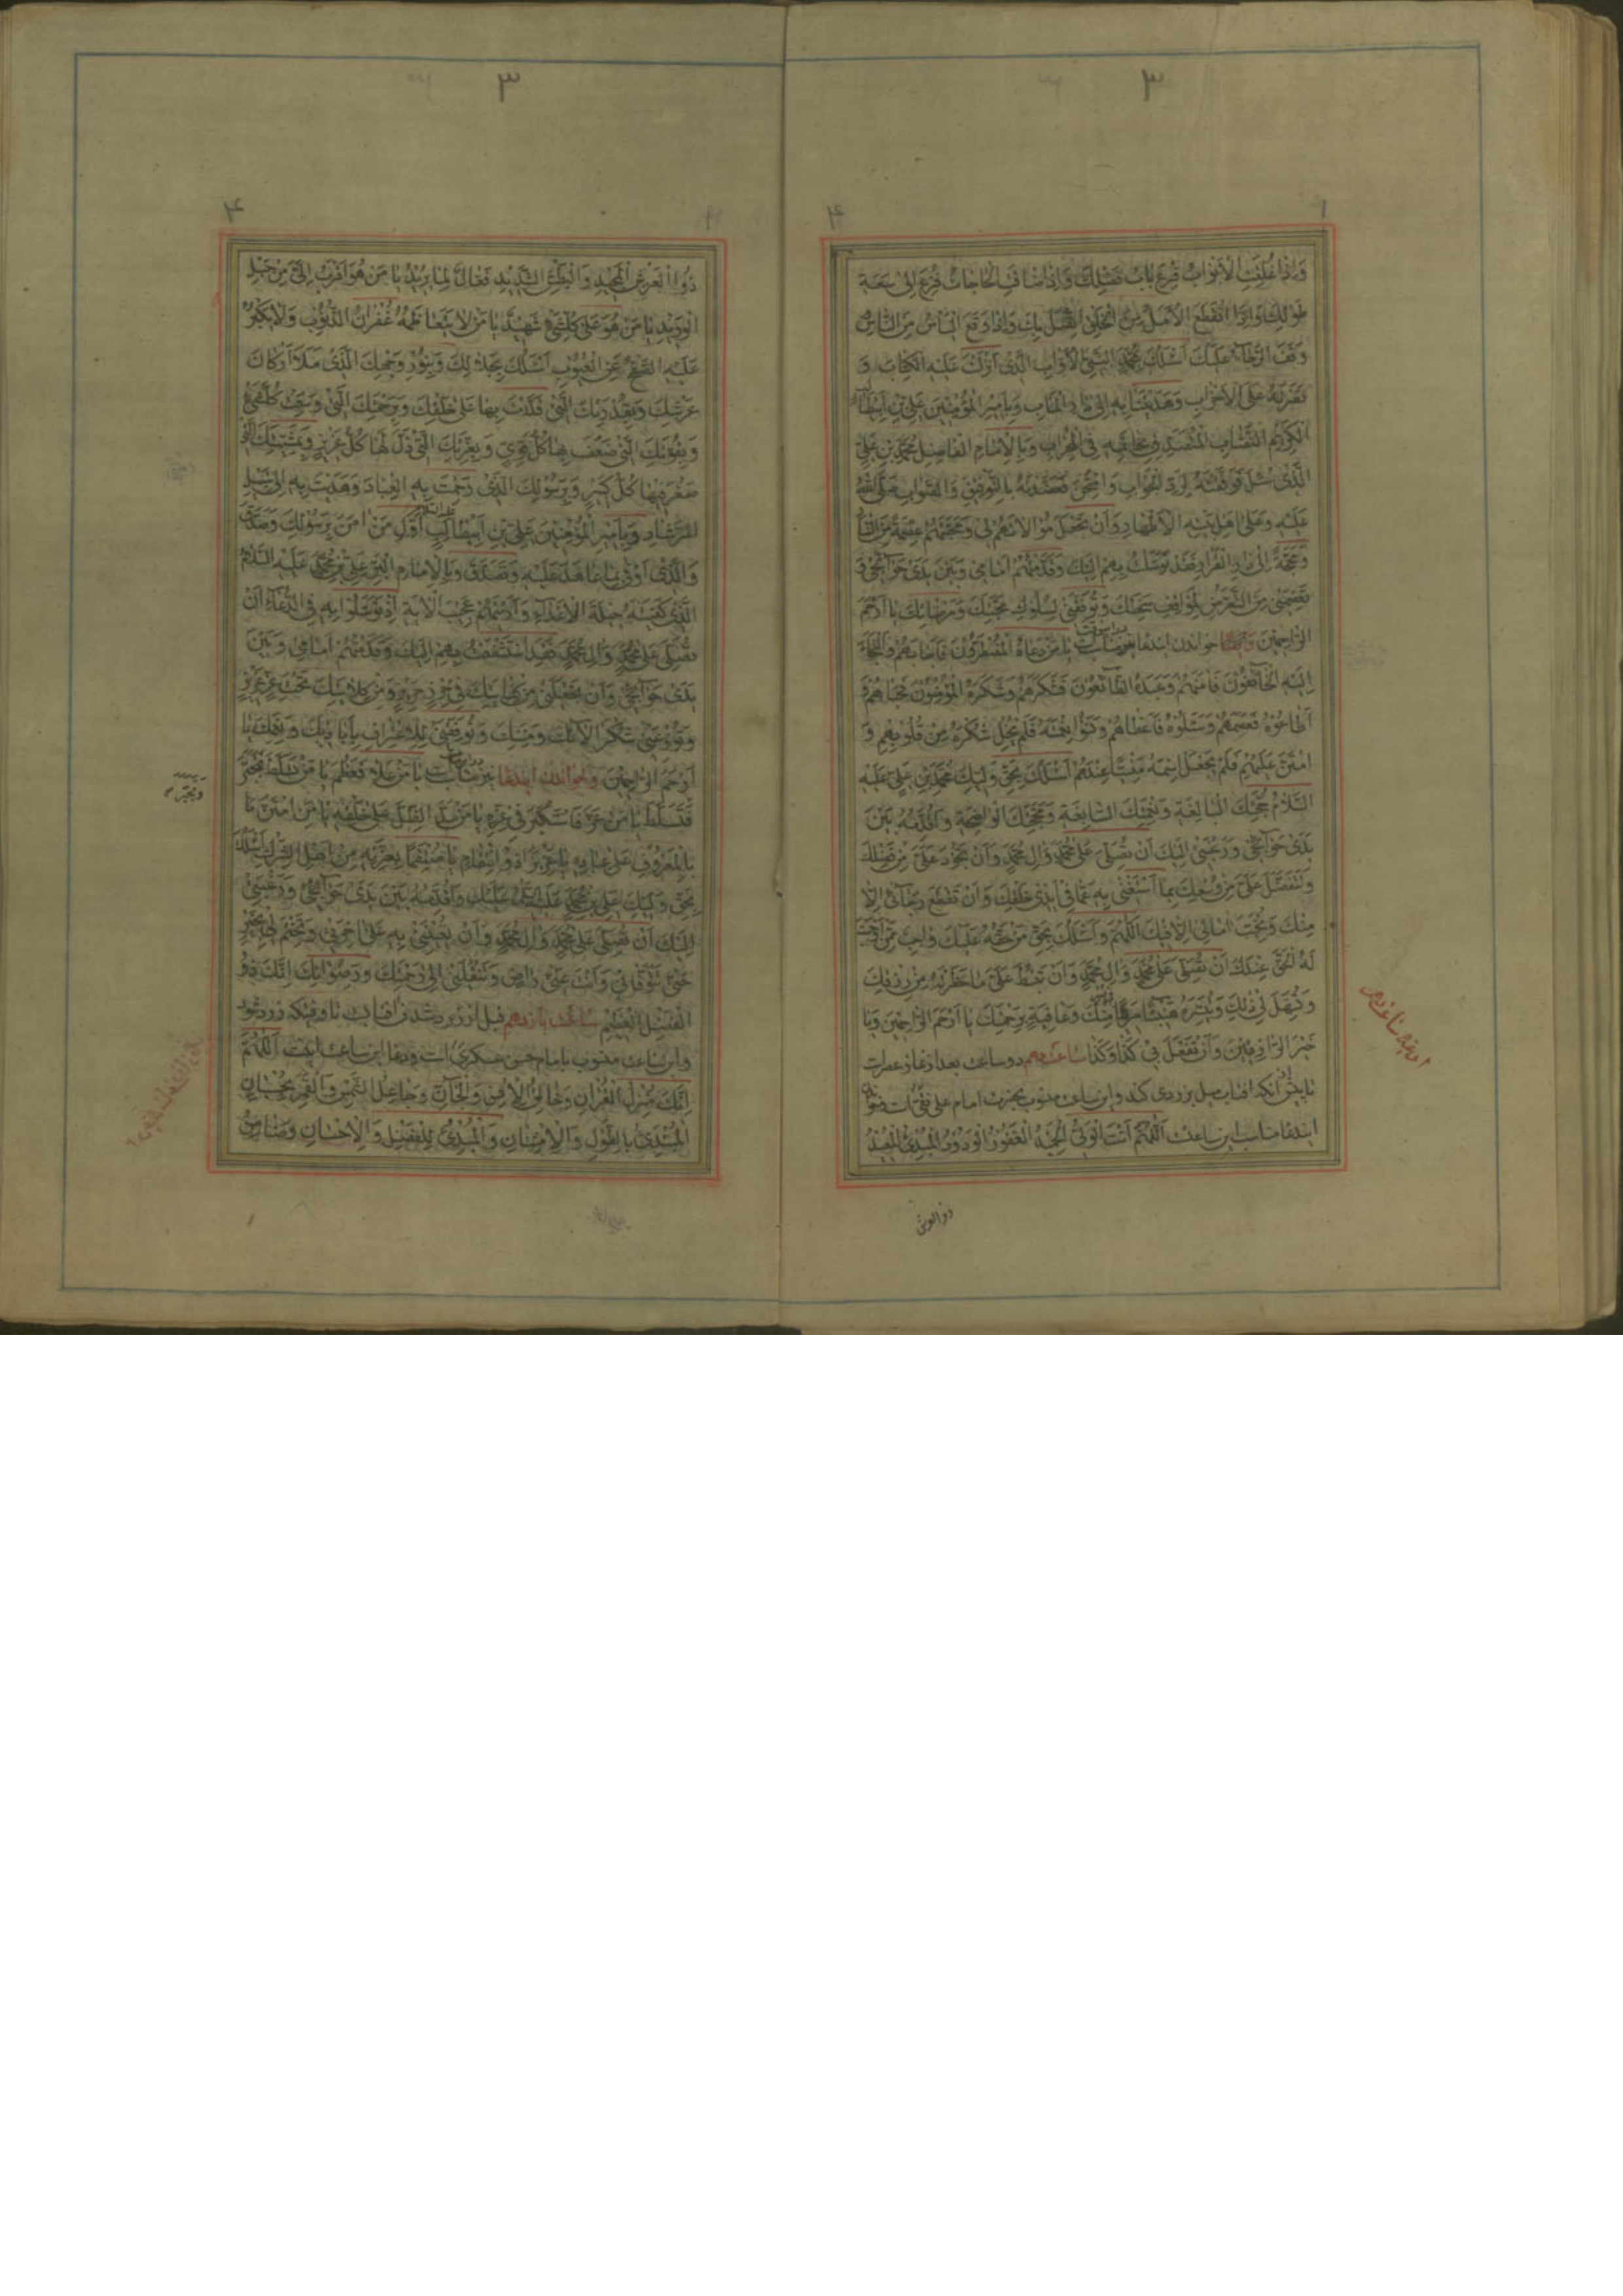 ٣
٤
وَاِذَا غُلِّقَتِ الْاَبْوَابُ قُرِعَ بَابُ فَضْلِكَ وَاِذَا ضَاقَتِ الْحَاجَاتُ فُزِعَ اِلىٰ سَعَةِ
طَوْلِكَ وَاِذَا انْقَطَعَ الْاَمَلُ مِنَ الْخَلْقِ اتَّصَلَ بِكَ وَاِذَا وَقَعَ الْيَاْسُ مِنَ النَّاسِ
وَقَفَ الرَّجَآءُ عَلَيْكَ اَسْئَلُكَ بِحَقِّ النَّبِيِّ الْاَوَّابِ الَّذى اَنْزَلْتَ عَلَيْهِ الْكِتَابَ وَ
نَصَرْتَهُ عَلَى الْاَحْزَابِ وَهَدَيْتَنَا بِهِ اِلىٰ دَارِ الْمَاٰبِ وَبِاَمِيرِ الْمُؤْمِنِينَ عَلِيِّ بْنِ اَبِيطَالِبٍ
الْكَرِيمِ النِّصَابِ الْمُتَصَدِّقِ بِخَاتَمِهِ فِى الْمِحْرَابِ وَبِالْاِمَامِ الْفَاضِلِ مُحَمَّدِ بْنِ عَلِيٍّ
الَّذى سُئِلَ فَوَفَّقْتَهُ لِرَدِّ الْجَوَابِ وَامْتُحِنَ فَعَضَدْتَهُ بِالتَّوْفِيقِ وَالصَّوَابِ صَلَّى اللهُ
عَلَيْهِ وَعَلىٰ اَهْلِ بَيْتِهِ الْاَطْهَارِ وَاَنْ تَجْعَلَ مُوَالَاتَهُمْ لى وَمَحَبَّتَهُمْ عِصْمَةً مِنَ النَّارِ
وَمَحَجَّةً اِلىٰ دَارِ الْقَرَارِ فَقَدْ تَوَسَّلْتُ بِهِمْ اِلَيْكَ وَقَدَّمْتُهُمْ اَمَامى وَبَيْنَ يَدَىْ حَوَآئِجى وَ
تَعْصِمَنى مِنَ التَّعَرُّضِ لِمَوَاقِفِ سَخَطِكَ وَتُوَفِّقَنى لِسُلُوكِ مَحَبَّتِكَ وَمَرْضَاتِكَ يَا اَرْحَمَ
الرَّاحِمِينَ خواندن ايندعا نيز مناسب يَا مَنْ دَعَاهُ الْمُضْطَرُّونَ فَاَجَابَهُمْ وَالْتَجَاَ
اِلَيْهِ الْخَآئِفُونَ فَاٰمَنَهُمْ وَعَبَدَهُ الطَّآئِعُونَ فَشَكَرَهُمْ وَشَكَرَهُ الْمُؤْمِنُونَ فَحَبَاهُمْ وَ
اَطَاعُوهُ فَعَصَمَهُمْ وَسَئَلُوهُ فَاَعْطَاهُمْ وَنَسُوا نِعْمَتَهُ فَلَمْ يُخْلِ شُكْرَهُ مِنْ قُلُوبِهِمْ وَ
امْتَنَّ عَلَيْهِمْ فَلَمْ يَجْعَلِ اسْمَهُ مَنْسِيًّا عِنْدَهُمْ اَسْئَلُكَ بِحَقِّ وَلِيِّكَ مُحَمَّدِ بْنِ عَلِيٍّ عَلَيْهِ
السَّلَامُ حُجَّتِكَ الْبَالِغَةِ وَنِعْمَتِكَ السَّابِغَةِ وَمَحَجَّتِكَ الْوَاضِحَةِ وَاُقَدِّمُهُ بَيْنَ
يَدَىْ حَوَآئِجى وَرَغْبَتى اِلَيْكَ اَنْ تُصَلِّىَ عَلىٰ مُحَمَّدٍ وَاٰلِ مُحَمَّدٍ وَاَنْ تَجُودَ عَلَىَّ مِنْ فَضْلِكَ
وَتَتَفَضَّلَ عَلَىَّ مِنْ وُسْعِكَ بِمَا اَسْتَغْنى بِهِ عَمَّا فى اَيْدى خَلْقِكَ وَاَنْ تَقْطَعَ رَجَآئى اِلَّا
مِنْكَ وَتُخَيِّبَ اٰمَالى اِلَّا فِيكَ اَللّٰهُمَّ وَاَسْئَلُكَ بِحَقِّ مَنْ حَقُّهُ عَلَيْكَ وَاجِبٌ مِمَّنْ اَوْجَبْتَ
لَهُ الْحَقَّ عِنْدَكَ اَنْ تُصَلِّىَ عَلىٰ مُحَمَّدٍ وَاٰلِ مُحَمَّدٍ وَاَنْ تَبْسُطَ عَلَىَّ مَا حَظَرْتَهُ مِنْ رِزْقِكَ
وَتُسَهِّلَ لى ذٰلِكَ وَتُيَسِّرَهُ هَنِيئًا مَرِيئًا مِنْكَ وَعَافِيَةٍ بِرَحْمَتِكَ يَا اَرْحَمَ الرَّاحِمِينَ وَيَا
خَيْرَ الرَّازِقِينَ وَاَنْ تَفْعَلَ بى كَذَا وَكَذَا ساعت دهم دو ساعت بعد از نماز عصرست
تا پيش از آنكه افتاب ميل بزردى كند و اين ساعت منسوب بحضرت امام على نقى است
ايندعا مناسب اين ساعت اَللّٰهُمَّ اَنْتَ الْوَلِىُّ الْحَمِيدُ الْغَفُورُ الْوَدُودُ الْمُبْدِئُ الْمُعِيدُ
ذو العرش
ادعيه ساعت دهم
٣
٤
ذُو الْعَرْشِ الْمَجِيدِ وَالْبَطْشِ الشَّدِيدِ فَعَّالٌ لِمَا يُرِيدُ يَا مَنْ هُوَ اَقْرَبُ اِلَىَّ مِنْ حَبْلِ
الْوَرِيدِ يَا مَنْ هُوَ عَلىٰ كُلِّ شَىْءٍ شَهِيدٌ يَا مَنْ لَا يَتَعَاظَمُهُ غُفْرَانُ الذُّنُوبِ وَلَا يَكْبُرُ
عَلَيْهِ الصَّفْحُ عَنِ الْعُيُوبِ اَسْئَلُكَ بِجَلَالِكَ وَبِنُورِ وَجْهِكَ الَّذى مَلَاَ اَرْكَانَ
عَرْشِكَ وَبِقُدْرَتِكَ الَّتى قَدَرْتَ بِهَا عَلىٰ خَلْقِكَ وَبِرَحْمَتِكَ الَّتى وَسِعَتْ كُلَّ شَىْءٍ
وَبِقُوَّتِكَ الَّتى ضَعُفَ بِهَا كُلُّ قَوِىٍّ وَبِعِزَّتِكَ الَّتى ذَلَّ لَهَا كُلُّ عَزِيزٍ وَبِمَشِيَّتِكَ الَّتى
صَغُرَ فِيهَا كُلُّ كَبِيرٍ وَبِرَسُولِكَ الَّذى رَحِمْتَ بِهِ الْعِبَادَ وَهَدَيْتَ بِهِ اِلىٰ سُبُلِ
الرَّشَادِ وَبِاَمِيرِ الْمُؤْمِنِينَ عَلِيِّ بْنِ اَبِيطَالِبٍ اَوَّلِ مَنْ اٰمَنَ بِرَسُولِكَ وَصَدَّقَ
وَالَّذى اَوْفىٰ بِمَا عَاهَدَ عَلَيْهِ وَتَصَدَّقَ وَبِالْاِمَامِ الْبَرِّ عَلِيِّ بْنِ مُحَمَّدٍ عَلَيْهِ السَّلَامُ
الَّذى كَفَيْتَهُ حِيلَةَ الْاَعْدَآءِ وَاَرَيْتَهُمْ عَجِيبَ الْاٰيَةِ اِذْ تَوَسَّلُوا بِهِ فِى الدُّعَآءِ اَنْ
تُصَلِّىَ عَلىٰ مُحَمَّدٍ وَاٰلِ مُحَمَّدٍ فَقَدِ اسْتَشْفَعْتُ بِهِمْ اِلَيْكَ وَقَدَّمْتُهُمْ اَمَامى وَبَيْنَ
يَدَىْ حَوَآئِجى وَاَنْ تَجْعَلَنى مِنْ كِفَايَتِكَ فى حِرْزٍ حَرِيزٍ وَمِنْ كِلَائَتِكَ تَحْتَ عِزٍّ عَزِيزٍ
وَتُوزِعَنى شُكْرَ اٰلَائِكَ وَمِنَنِكَ وَتُوَفِّقَنى لِلْاِعْتِرَافِ بِاَيَادِيكَ وَنِعَمِكَ يَا
اَرْحَمَ الرَّاحِمِينَ وخواندن ايندعا نيز مناسبست يَا مَنْ عَلَا فَعَظُمَ يَا مَنْ تَسَلَّطَ فَتَجَبَّرَ
فَتَسَلَّطَ يَا مَنْ عَزَّ فَاسْتَكْبَرَ فى عِزِّهِ يَا مَنْ مَدَّ الظِّلَّ عَلىٰ خَلْقِهِ يَا مَنِ امْتَنَّ
بِالْمَعْرُوفِ عَلىٰ عِبَادِهِ يَا عَزِيزًا ذَا انْتِقَامٍ يَا مُنْتَقِمًا بِعِزَّتِهِ مِنْ اَهْلِ الشِّرْكِ اَسْئَلُكَ
بِحَقِّ وَلِيِّكَ عَلِيِّ بْنِ مُحَمَّدٍ عَلَيْكَ وَاُقَدِّمُهُ بَيْنَ يَدَىْ حَوَآئِجى وَرَغْبَتى
اِلَيْكَ اَنْ تُصَلِّىَ عَلىٰ مُحَمَّدٍ وَاٰلِ مُحَمَّدٍ وَاَنْ تُعِينَنى بِهِ عَلىٰ اٰخِرَتى وَتَخْتِمَ لى بِخَيْرٍ
حَتّىٰ تَتَوَفَّانى وَاَنْتَ عَنّى رَاضٍ وَتَنْقُلَنى اِلىٰ رَحْمَتِكَ وَرِضْوَانِكَ اِنَّكَ ذُو
الْفَضْلِ الْعَظِيمِ ساعت يازدهم قبل از زرد شدن افتاب تا وقتيكه زرد شود
و اين ساعت منسوب بامام حسن عسكرى است و دعا اين ساعت اينست اَللّٰهُمَّ
اِنَّكَ مُنْزِلُ الْقُرْاٰنِ وَخَالِقُ الْاِنْسِ وَالْجَآنِّ وَجَاعِلُ الشَّمْسِ وَالْقَمَرِ بِحُسْبَانٍ
الْمُبْتَدِئُ بِالطَّوْلِ وَالْاِمْتِنَانِ وَالْمُبْدِئُ لِلْفَضْلِ وَالْاِحْسَانِ وَضَامِنُ